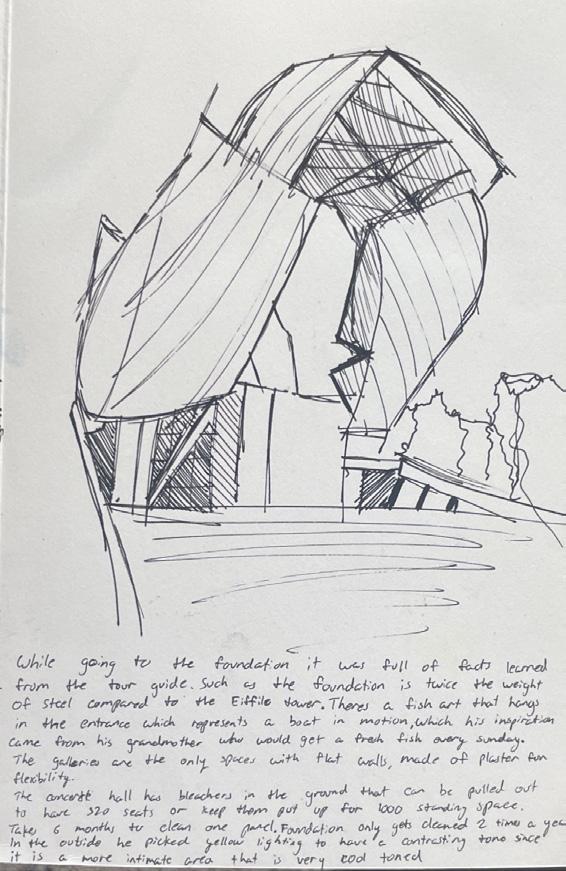 While going to the foundation it was full of facts learned
from the tour guide. Such as the foundation is twice the weight
of steel compared to the Eiffile tower. Theres a fish art that hangs
in the entrance which represents a boat in motion, which his inspiration
came from his grandmother who would get a fresh fish every sunday.
The galleries are the only spaces with flat walls, made of plaster fun
flexibility.
The concerte hall has bleachers in the ground that can be pulled out
to have 320 seats or keep them put up for 1000 standing space.
Takes 6 months to clean one panel. Foundation only gets cleaned 2 times a year
In the outside he picked yellow lighting to have a contrasting tone since
it is a more intimate area that is very cool toned